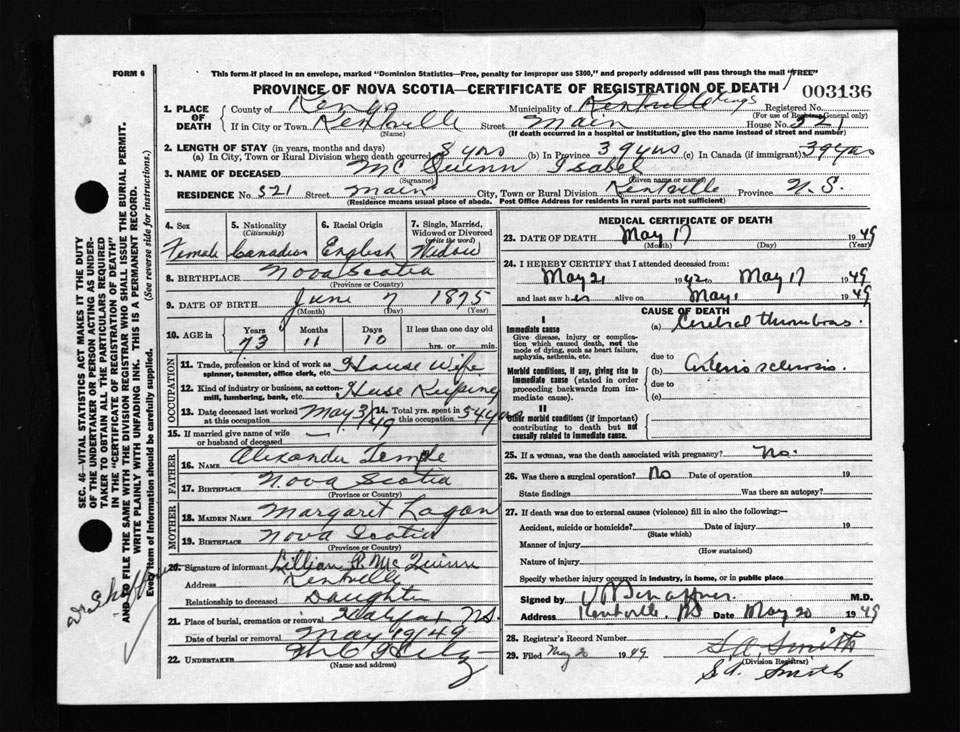 FORM 6
This form if placed in an envelope, marked "Dominion Statistics—Free, penalty for improper use $300," and properly addressed will pass through the mail "FREE"
PROVINCE OF NOVA SCOTIA—CERTIFICATE OF REGISTRATION OF DEATH
003136
1. PLACE OF DEATH
County of Kings Municipality of Kentville Kings Registered No.
(For use of Registrar General only)
If in City or Town Kentville Street Main House No. 321
(Name) (If death occurred in a hospital or institution, give the name instead of street and number)
2. LENGTH OF STAY (in years, months and days)
(a) In City, Town or Rural Division where death occurred 8 yrs (b) In Province 39 yrs (c) In Canada (if immigrant) 39 yrs
3. NAME OF DECEASED McQuinn Isabel
(Surname) (Given name or names)
RESIDENCE No 321 Street Main City, Town or Rural Division Kentville Province N.S.
(Residence means usual place of abode. Post Office Address for residents in rural parts not sufficient)
4. Sex Female
5. Nationality (Citizenship) Canadian
6. Racial Origin English
7. Single, Married, Widowed or Divorced (write the word) Widow
8. BIRTHPLACE Nova Scotia
(Province or Country)
9. DATE OF BIRTH June 7 1875
(Month) (Day) (Year)
10. AGE in Years Months Days If less than one day old
73 11 10 hrs. or min.
OCCUPATION
11. Trade, profession or kind of work as spinner, teamster, office clerk, etc. House Wife
12. Kind of industry or business, as cotton-mill, lumbering, bank, etc. House Keeping
13. Date deceased last worked at this occupation May 3/49 14. Total yrs. spent in this occupation 54 yrs
15. If married give name of wife or husband of deceased —
FATHER
16. NAME Alexander Temple
17. BIRTHPLACE Nova Scotia
(Province or Country)
MOTHER
18. MAIDEN NAME Margaret Logan
19. BIRTHPLACE Nova Scotia
(Province or Country)
20. Signature of informant Lillian P. McQuinn
Address Kentville
Relationship to deceased Daughter
21. Place of burial, cremation or removal Halifax NS.
Date of burial or removal May 19/49
22. UNDERTAKER
(Name and address)
MEDICAL CERTIFICATE OF DEATH
23. DATE OF DEATH May 17 1949
(Month) (Day) (Year)
24. I HEREBY CERTIFY that I attended deceased from:
May 21 1942 to May 17 1949
and last saw her alive on May 1 1949
CAUSE OF DEATH
I
Immediate cause (a) Cerebral thrombosis.
Give disease, injury or complication which caused death, not the mode of dying, such as heart failure, asphyxia, asthenia, etc.
due to
Morbid conditions, if any, giving rise to immediate cause (stated in order proceeding backwards from immediate cause).
(b) Arterio sclerosis.
due to
(c)
II
Other morbid conditions (if important) contributing to death but not causally related to immediate cause.
25. If a woman, was the death associated with pregnancy? No.
26. Was there a surgical operation? No Date of operation 19
State findings Was there an autopsy?
27. If death was due to external causes (violence) fill in also the following:—
Accident, suicide or homicide? Date of injury 19
(State which)
Manner of injury
(How sustained)
Nature of injury
Specify whether injury occurred in industry, in home, or in public place
Signed by Schaffner M.D.
Address Kentville, NS Date May 20 1949
28. Registrar's Record Number
29. Filed May 20 1949 S.A. Smith
(Division Registrar)
S.A. Smith
SEC. 46—VITAL STATISTICS ACT MAKES IT THE DUTY
OF THE UNDERTAKER OR PERSON ACTING AS UNDER-
TAKER TO OBTAIN ALL THE PARTICULARS REQUIRED
IN THE "CERTIFICATE OF REGISTRATION OF DEATH"
AND TO FILE THE SAME WITH THE DIVISION REGISTRAR WHO SHALL ISSUE THE BURIAL PERMIT.
WRITE PLAINLY WITH UNFADING INK. THIS IS A PERMANENT RECORD.
Every item of Information should be carefully supplied. (See reverse side for instructions.)